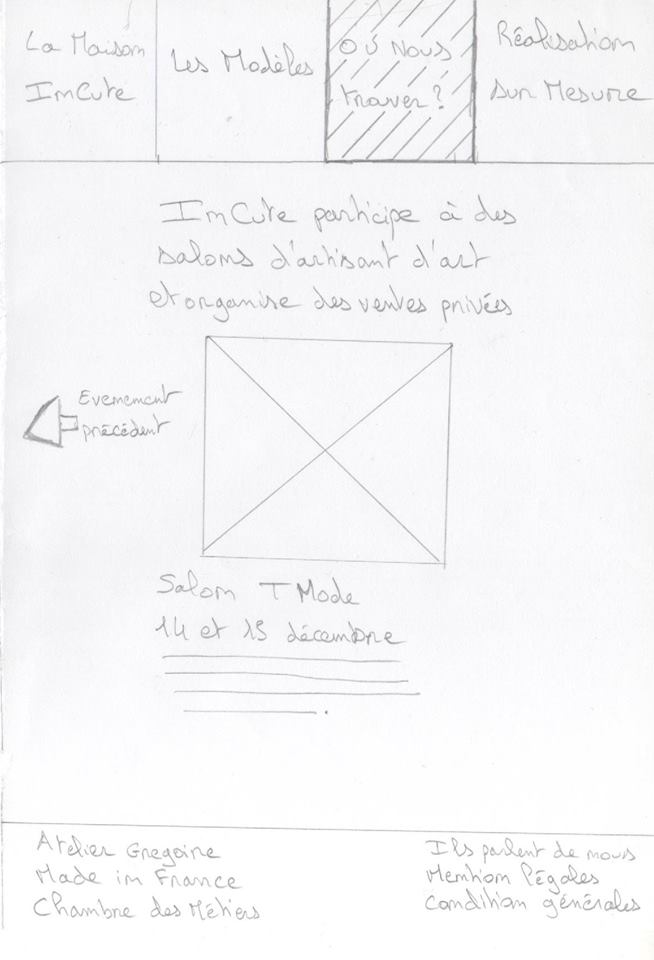 La Maison
ImCute
Les Modèles
Où Nous
trouver ?
Réalisation
sur Mesure
ImCute participe à des
salons d'artisant d'art
et organise des ventes privées
Evenement
précédent
Salon T Mode
14 et 15 décembre
Atelier Gregoire
Made in France
Chambre des Métiers
Ils parlent de nous
Mention légales
condition générales